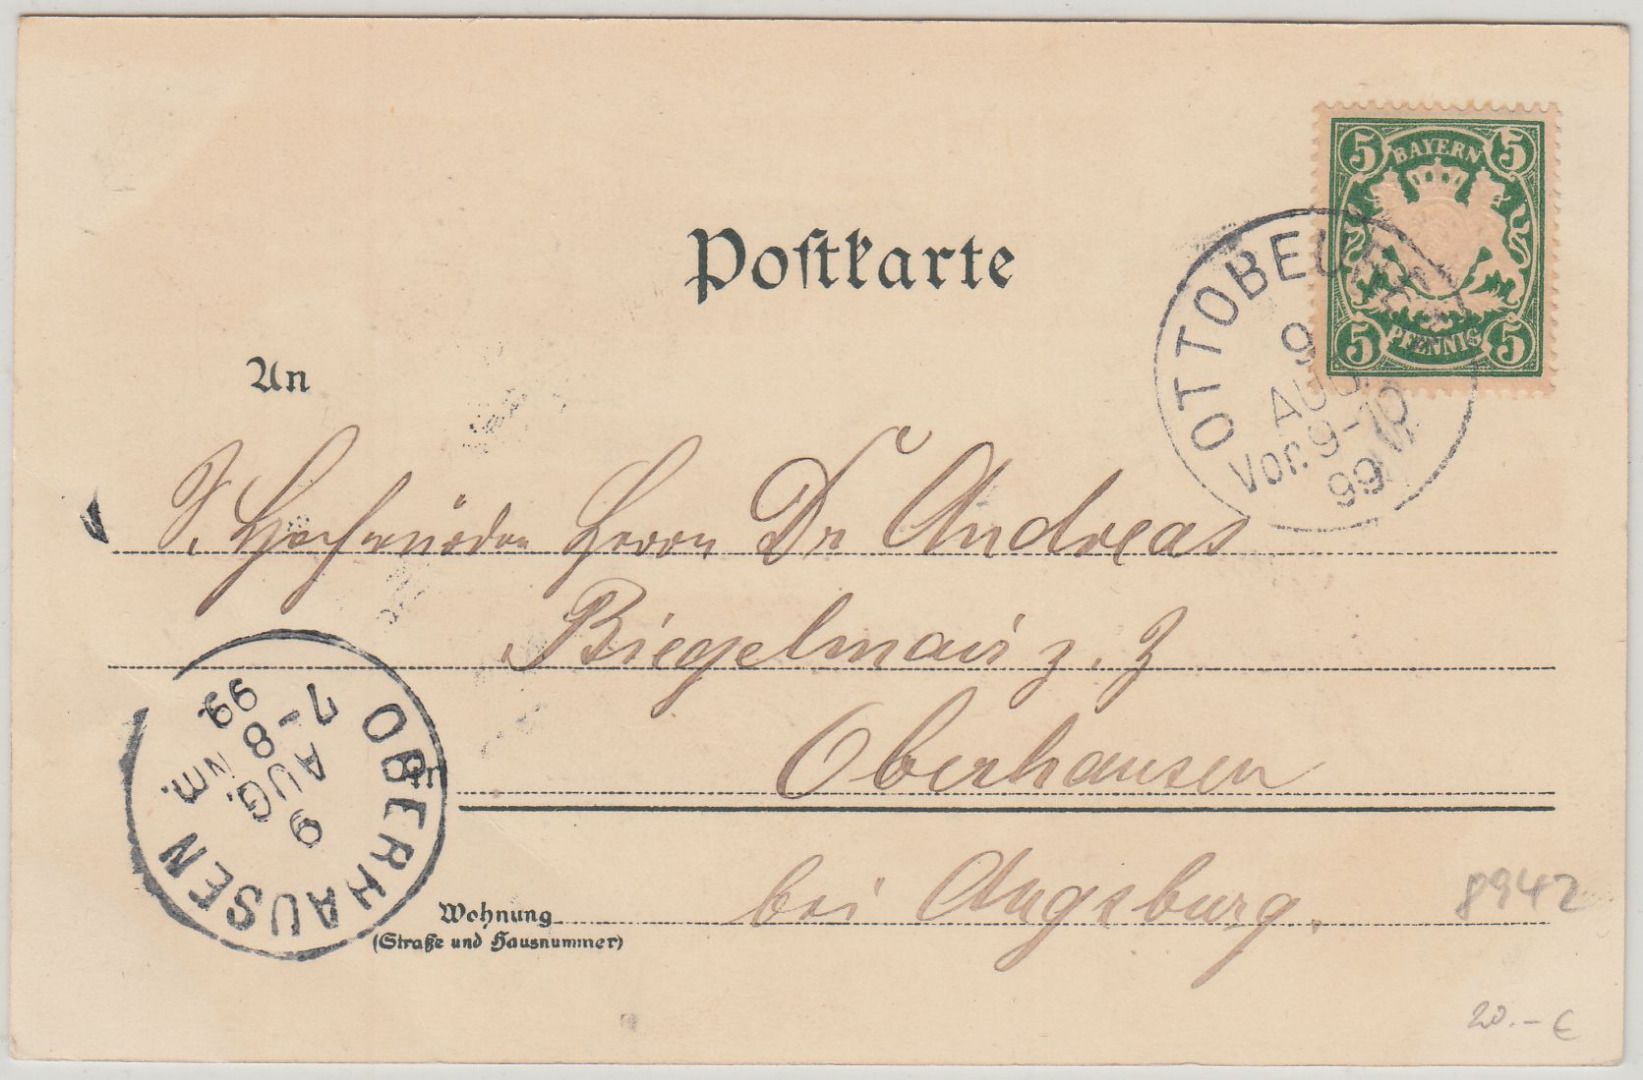 5 BAYERN 5
5 PFENNIG 5
Postkarte
OTTOBEUREN
9
AUG.
Vor. 9-10
99
An
S. Hochwürden Herrn Dr Andreas
Biegelmair z. Z
in Oberhausen
OBERHAUSEN
9
AUG. Nm.
7-8
99.
bei Augsburg.
Wohnung
(Straße und Hausnummer)
8942
20.- €